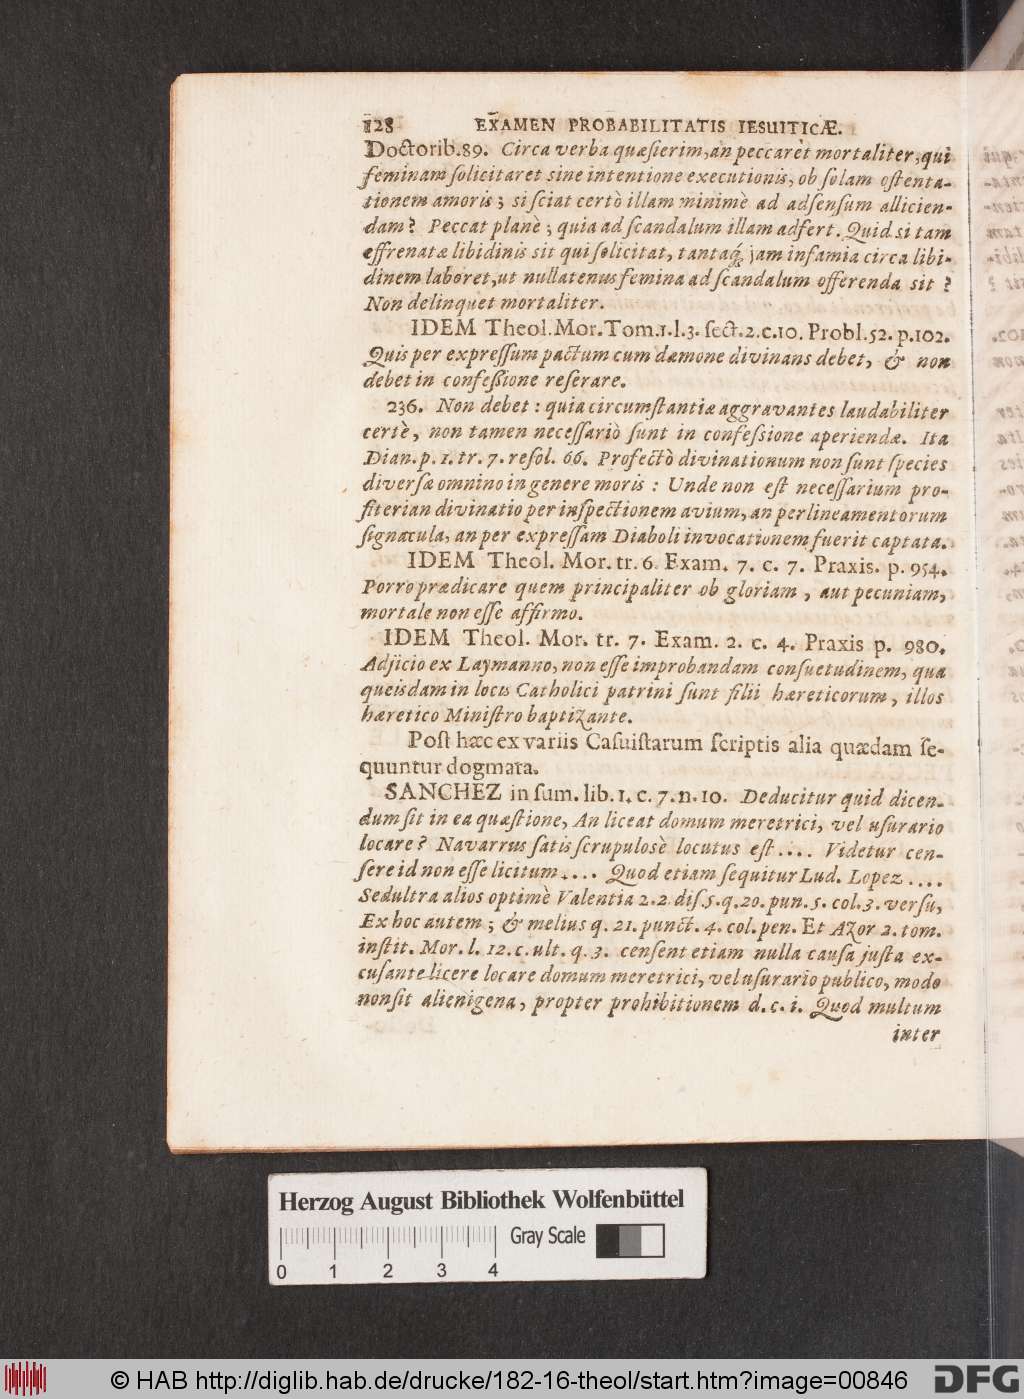 128 EXAMEN PROBABILITATIS IESUITICÆ.
Doctorib. 89. Circa verba quæsierim, an peccarèt mortaliter, qui
feminam solicitaret sine intentione executionis, ob solam ostenta-
tionem amoris; si sciat certò illam minimè ad adsensum allicien-
dam? Peccat planè; quia ad scandalum illam adfert. Quid si tam
effrenatæ libidinis sit qui solicitat, tantaq́; jam infamia circa libi-
dinem laboret, ut nullatenus femina ad scandalum offerenda sit?
Non delinquet mortaliter.
IDEM Theol. Mor. Tom. 1. l. 3. sect. 2. c. 10. Probl. 52. p. 102.
Quis per expressum pactum cum dæmone divinans debet, & non
debet in confessione reserare.
236. Non debet: quia circumstantiæ aggravantes laudabiliter
certè, non tamen necessariò sunt in confessione aperiendæ. Ita
Dian. p. 1. tr. 7. resol. 66. Profectò divinationum non sunt species
diversæ omnino in genere moris: Unde non est necessarium pro-
fiteri an divinatio per inspectionem avium, an per lineamentorum
signacula, an per expressam Diaboli invocationem fuerit captata.
IDEM Theol. Mor. tr. 6. Exam. 7. c. 7. Praxis. p. 954.
Porro prædicare quem principaliter ob gloriam, aut pecuniam,
mortale non esse affirmo.
IDEM Theol. Mor. tr. 7. Exam. 2. c. 4. Praxis p. 980.
Adjicio ex Laymanno, non esse improbandam consuetudinem, qua
queisdam in locis Catholici patrini sunt filii hæreticorum, illos
hæretico Ministro baptizante.
Post hæc ex variis Casuistarum scriptis alia quædam se-
quuntur dogmata.
SANCHEZ in sum. lib. 1. c. 7. n. 10. Deducitur quid dicen-
dum sit in ea quæstione, An liceat domum meretrici, vel usurario
locare? Navarrus satis scrupulosè locutus est .... Videtur cen-
sere id non esse licitum .... Quod etiam sequitur Lud. Lopez ....
Sed ultra alios optimè Valentia 2. 2. dis. 5. q. 20. pun. 5. col. 3. versu,
Ex hoc autem; & melius q. 21. punct. 4. col. pen. Et Azor 2. tom.
instit. Mor. l. 12. c. ult. q. 3. censent etiam nulla causa justa ex-
cusante licere locare domum meretrici, vel usurario publico, modo
non sit alienigena, propter prohibitionem d. c. i. Quod multum
inter
Herzog August Bibliothek Wolfenbüttel
Gray Scale
0 1 2 3 4
© HAB http://diglib.hab.de/drucke/182-16-theol/start.htm?image=00846
DFG